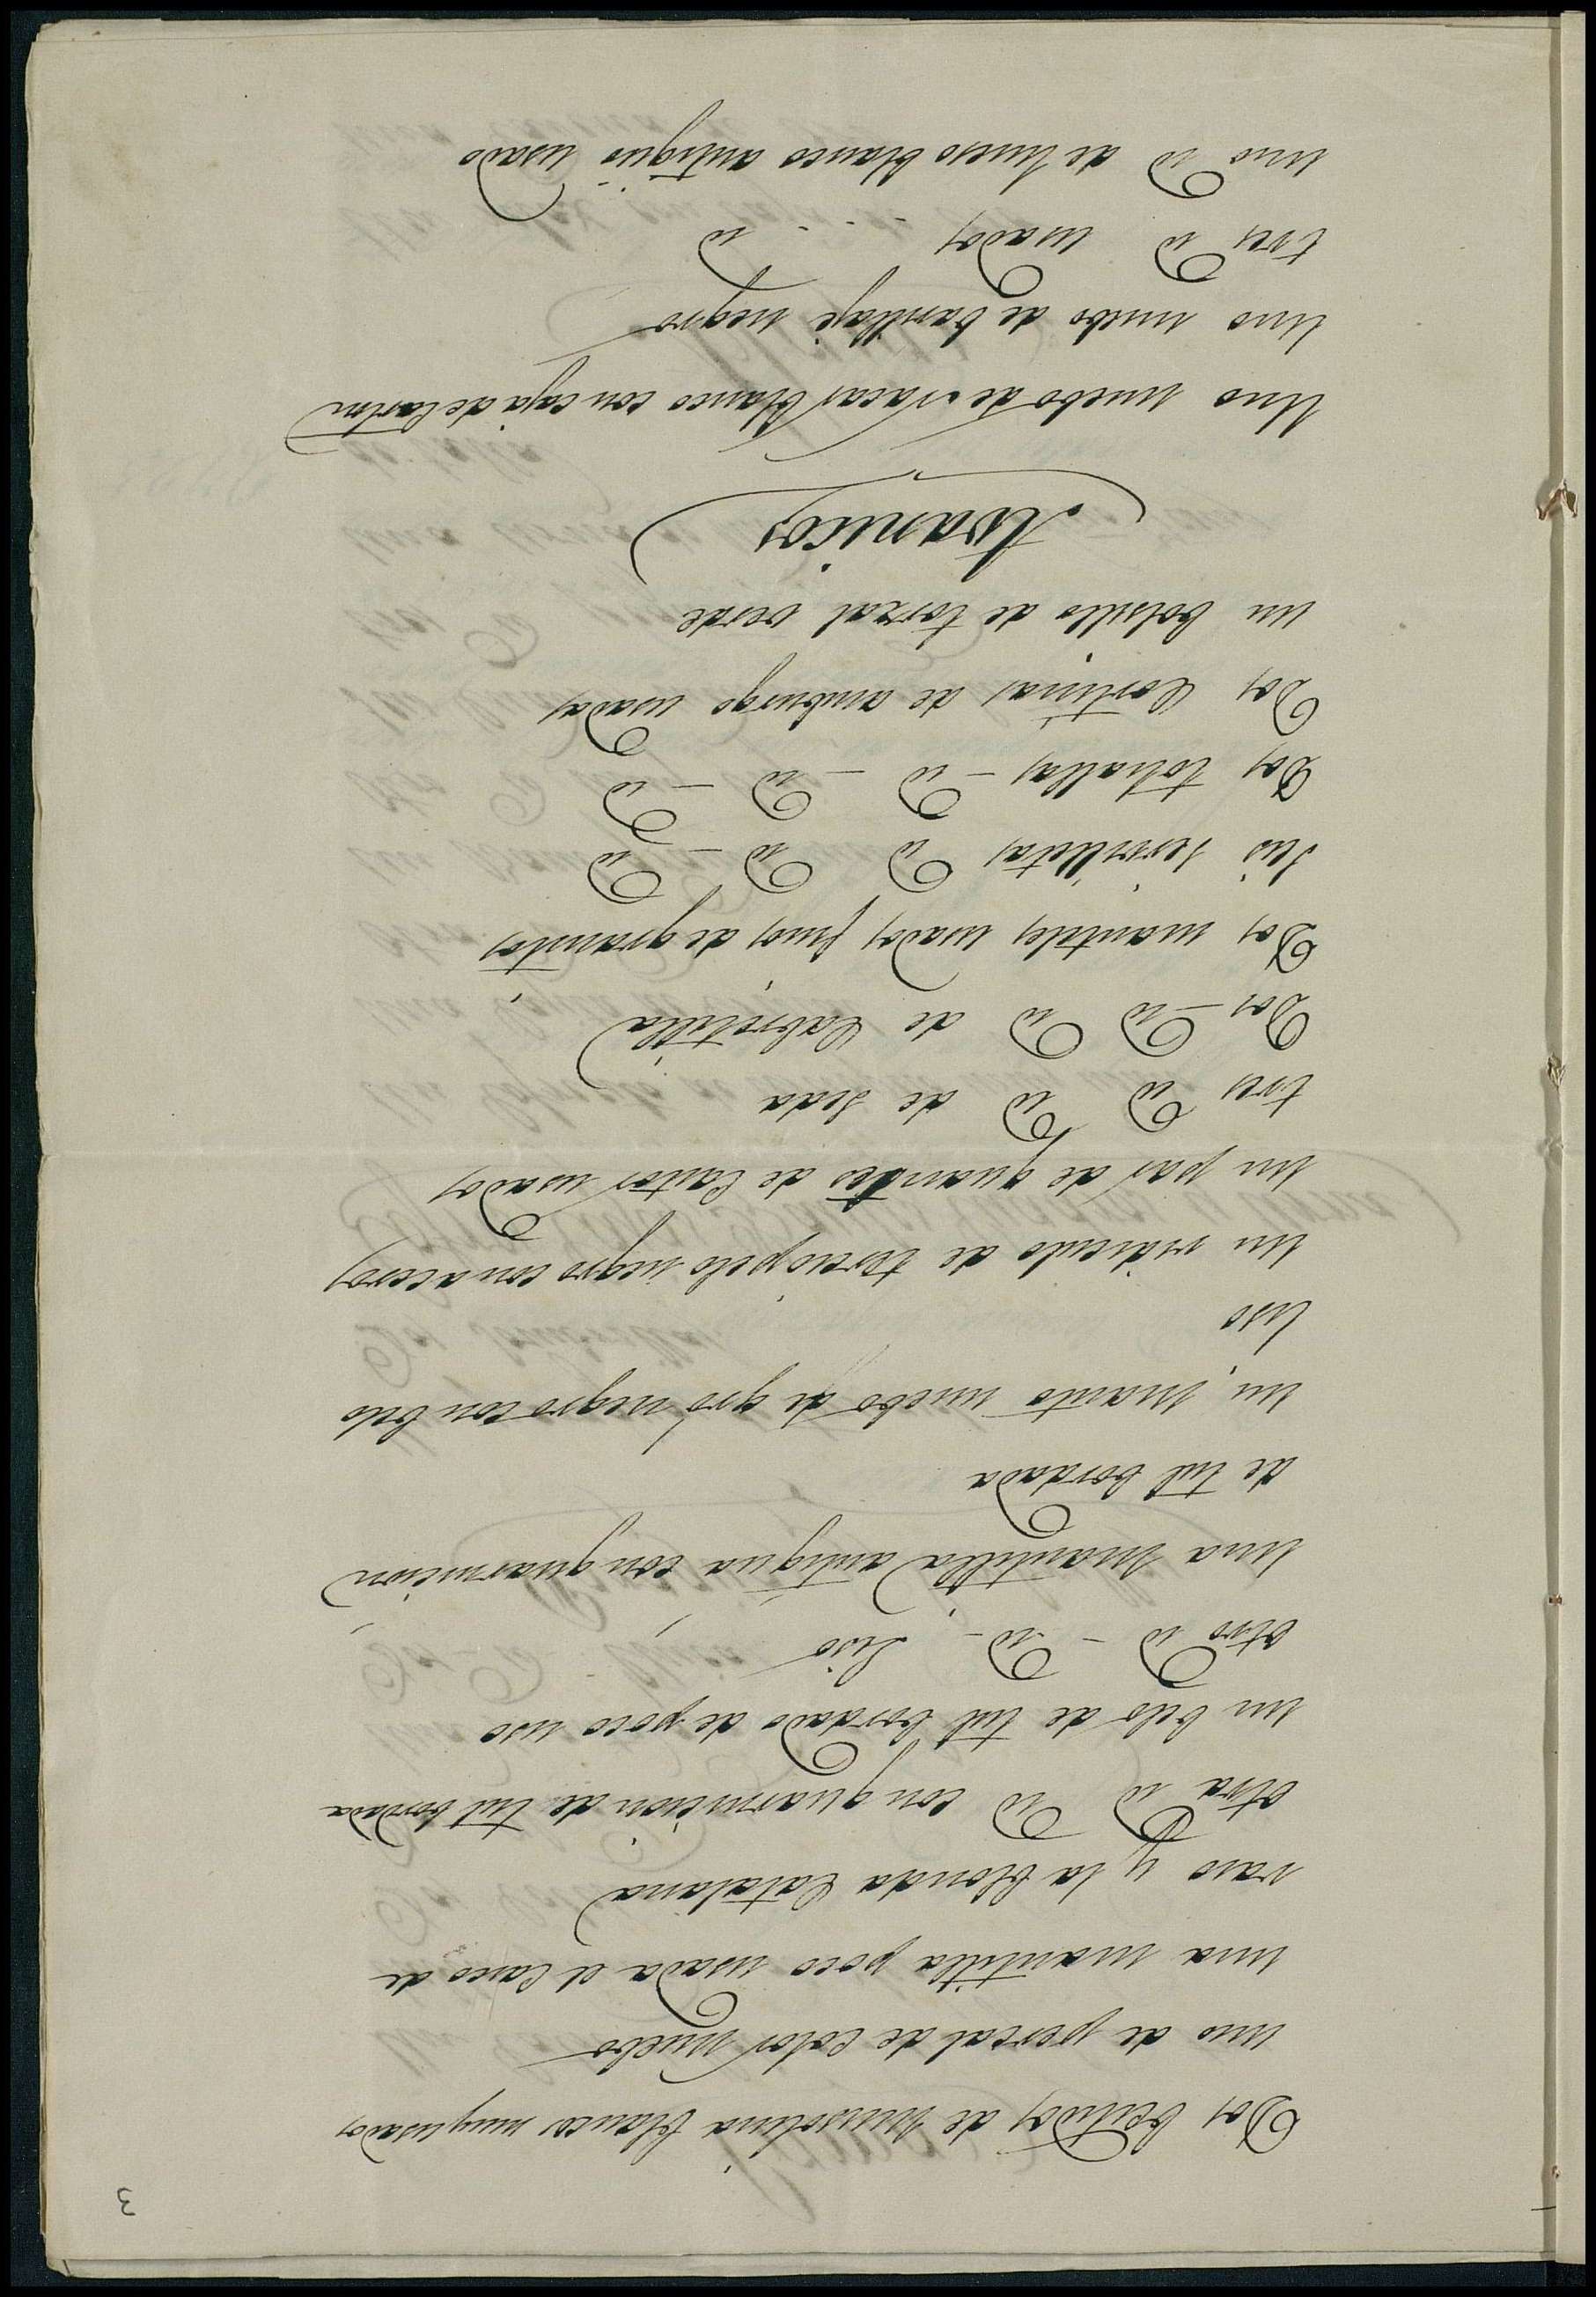 3
Dos bestidos de muselina blancos muy usados
uno de percal de color nuebo
una mantilla poco usada el casco de
raso y la blonda Catalana
otra id id con guarnicion de tul bordada
un belo de tul bordado de poco uso
otro id - id - Liso
una mantilla antigua con guarnicion
de tul bordada
un manto nuebo de gró negro con belo
liso
un ridiculo de terciopelo negro con aceros
un par de guantes de Castor usados
tres id id de seda
Dos - id id de Cabretilla
Dos manteles usados finos de granitos
seis servilletas id id - id
Dos tohallas - id - id - id
Dos Cortinas de amburgo usadas
un bolsillo de torzal verde
Avanicos
Uno nuebo de nacar blanco con caja de Carton
Uno nuebo de barillaje negro
tres id usados id
uno id de hueso blanco antiguo usado